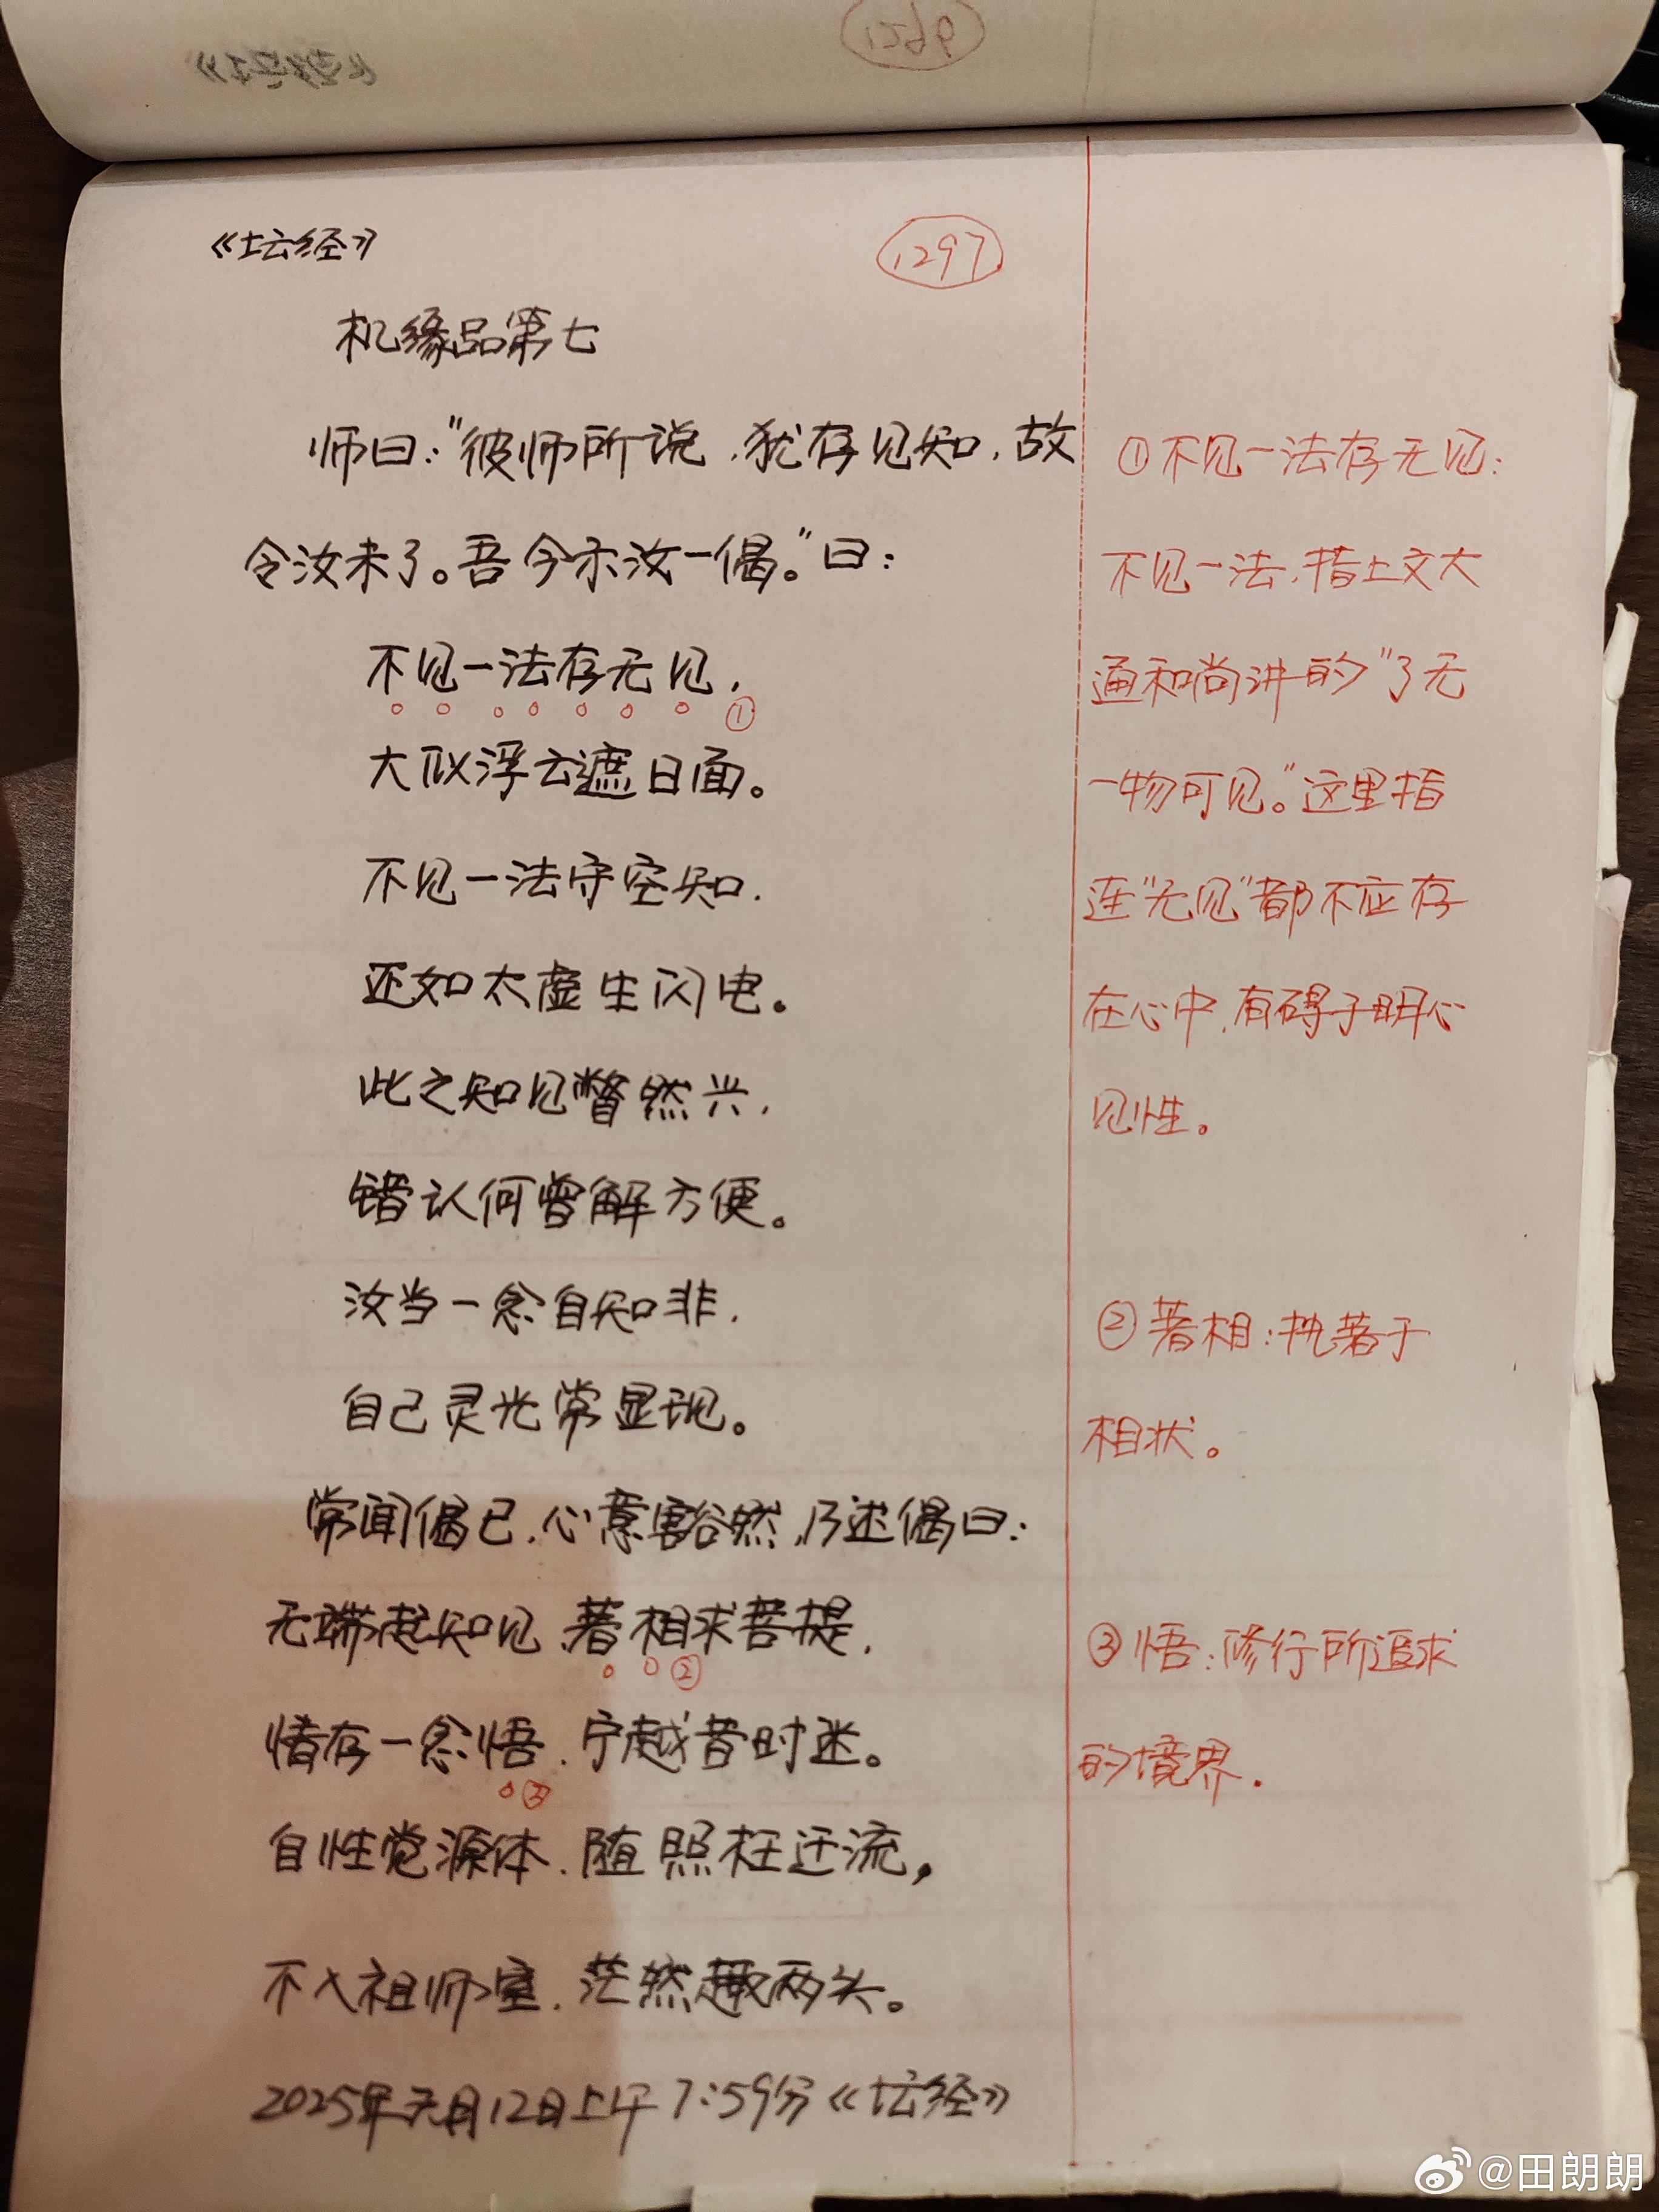 《坛经》
1297
机缘品第七
师曰:"彼师所说,犹存见知,故
令汝未了。吾今示汝一偈。"曰:
不见一法存无见,
①
大似浮云遮日面。
不见一法守空知,
还如太虚生闪电。
此之知见瞥然兴,
错认何曾解方便。
汝当一念自知非,
自己灵光常显现。
常闻偈已,心意豁然,乃述偈曰:
无端起知见,著相求菩提,
②
情存一念悟,宁越昔时迷。
③
自性觉源体,随照枉迁流,
不入祖师室,茫然趣两头。
2025年元月12日上午7:59分《坛经》
①不见一法存无见:
不见一法,指上文大
通和尚讲的"了无
一物可见。"这里指
连"无见"都不应存
在心中,有碍于明心
见性。
②著相:执著于
相状。
③悟:修行所追求
的境界.
@田朗朗